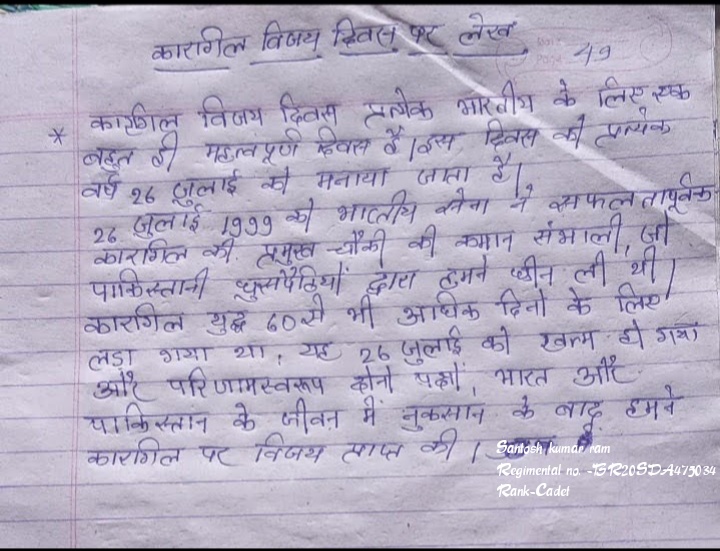 कारागिल विजय दिवस पर लेख
49
* कारगिल विजय दिवस प्रत्येक भारतीय के लिए एक
बहुत ही महत्वपूर्ण दिवस है। इस दिवस को प्रत्येक
वर्ष 26 जुलाई को मनाया जाता है।
26 जुलाई 1999 को भारतीय सेना ने सफलतापूर्वक
कारागिल की प्रमुख चौकी की कमान संभाली, जो
पाकिस्तानी घुसपैठियों द्वारा हमने छीन ली थी।
कारागिल युद्ध 60 से भी अधिक दिनों के लिए
लडा गया था, यह 26 जुलाई को खत्म हो गया
और परिणामस्वरूप दोनो पक्षों, भारत और
पाकिस्तान के जीवन में नुकसान के बाद हमने
कारागिल पर विजय प्राप्त की।
Santosh kumar ram
Regimental no. -BR20SDA475034
Rank-Cadet